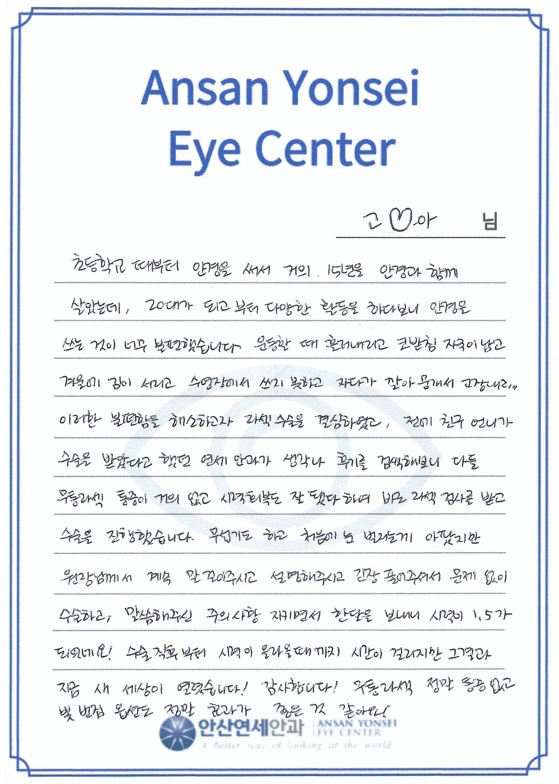 Ansan Yonsei
Eye Center
고♡아 님
초등학교 때부터 안경을 써서 거의 15년을 안경과 함께
살았는데, 20대가 되고부터 다양한 활동을 하다보니 안경을
쓰는 것이 너무 불편했습니다. 운동할 때 흘러내리고 코받침 자국이 남고
겨울에 김이 서리고 수영장에서 쓰지 못하고 자다가 깔아 뭉개서 고장내고..
이러한 불편함을 해소하고자 라섹수술을 결심하였고, 전에 친구 언니가
수술을 받았다고 했던 연세안과가 생각나 후기를 검색해보니 다들
무통라섹 통증이 거의 없고 시력회복도 잘 됐다 하여 바로 라섹 검사를 받고
수술을 진행했습니다. 무섭기도 하고 처음에 눈 벌리는게 아팠지만
원장님께서 계속 말 걸어주시고 설명해주시고 긴장 풀어주셔서 문제 없이
수술하고, 말씀해주신 주의사항 지키면서 한달을 보내니 시력이 1.5가
되었네요! 수술 직후부터 시력이 올라올때까지 시간이 걸리지만 그결과
지금 새 세상이 열렸습니다! 감사합니다! 무통라섹 정말 통증 없고
빛 번짐 옵션도 정말 효과가 좋은 것 같아요!
안산연세안과 ANSAN YONSEI
EYE CENTER
A better way of looking at the world